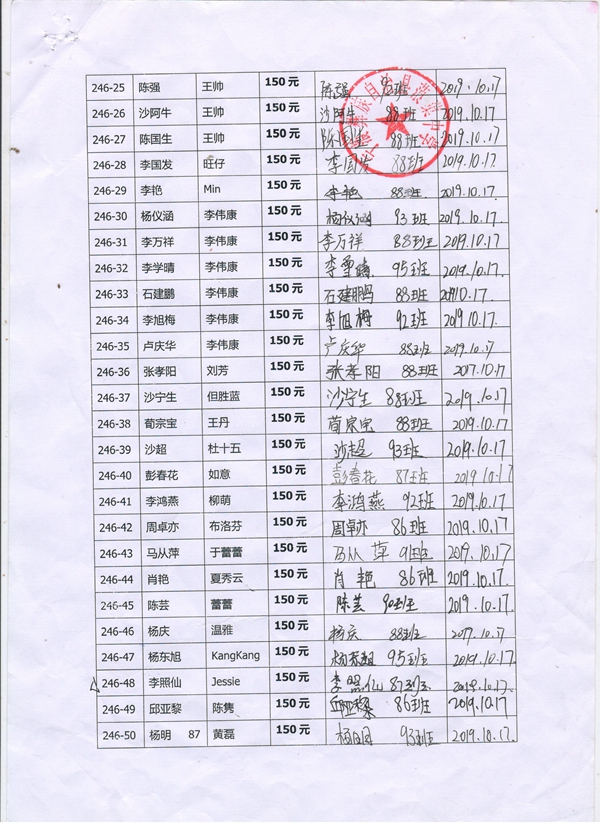 246-25 陈强 王帅 150元 陈强 93班 2019.10.17
246-26 沙阿牛 王帅 150元 沙阿牛 88班 2019.10.17
246-27 陈国生 王帅 150元 陈国生 88班 2019.10.17
246-28 李国发 旺仔 150元 李国发 88班 2019.10.17
246-29 李艳 Min 150元 李艳 88班 2019.10.17
246-30 杨仪涵 李伟康 150元 杨仪涵 93班 2019.10.17
246-31 李万祥 李伟康 150元 李万祥 88班 2019.10.17
246-32 李学晴 李伟康 150元 李学晴 95班 2019.10.17.
246-33 石建鹏 李伟康 150元 石建鹏 88班 201910.17.
246-34 李旭梅 李伟康 150元 李旭梅 92班 2019.10.17
246-35 卢庆华 李伟康 150元 卢庆华 88班 2019.10.17
246-36 张孝阳 刘芳 150元 张孝阳 88班 2017.10.17
246-37 沙宁生 但胜蓝 150元 沙宁生 88班 2019.10.17
246-38 荀宗宝 王丹 150元 荀宗宝 88班 2019.10.17
246-39 沙超 杜十五 150元 沙超 93班 2019.10.17
246-40 彭春花 如意 150元 彭春花 87班 2019.10.17
246-41 李鸿燕 柳萌 150元 李鸿燕 92班 2019.10.17
246-42 周卓亦 布洛芬 150元 周卓亦 86班 2019.10.17
246-43 马从萍 于蕾蕾 150元 马从萍 91班 2019.10.17
246-44 肖艳 夏秀云 150元 肖艳 86班 2019.10.17
246-45 陈芸 蕾蕾 150元 陈芸 90班 2019.10.17
246-46 杨庆 温雅 150元 杨庆 88班 2017.10.17
246-47 杨东旭 KangKang 150元 杨东旭 95班 2019.10.17
246-48 李照仙 Jessie 150元 李照仙 87班 2019.10.17
246-49 邱亚黎 陈隽 150元 邱亚黎 86班 2019.10.17
246-50 杨明 87 黄磊 150元 杨明 93班 2019.10.17.